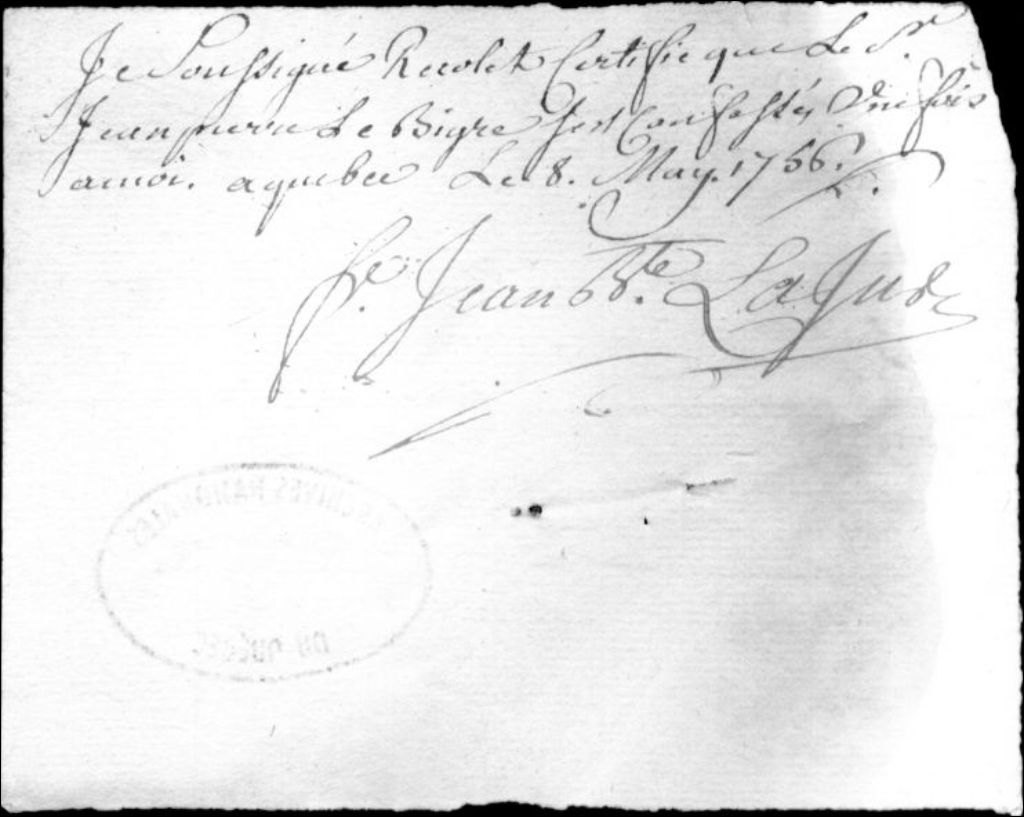 Je Soussigné Recolet Certifie que Le Sr
Jean pierre Le Bigre sest Confessés Une fois
a moi. a quebec Le 8. May. 1756.
fr. Jean Bte. LaJus
ARCHIVES NATIONALES
DU QUÉBEC